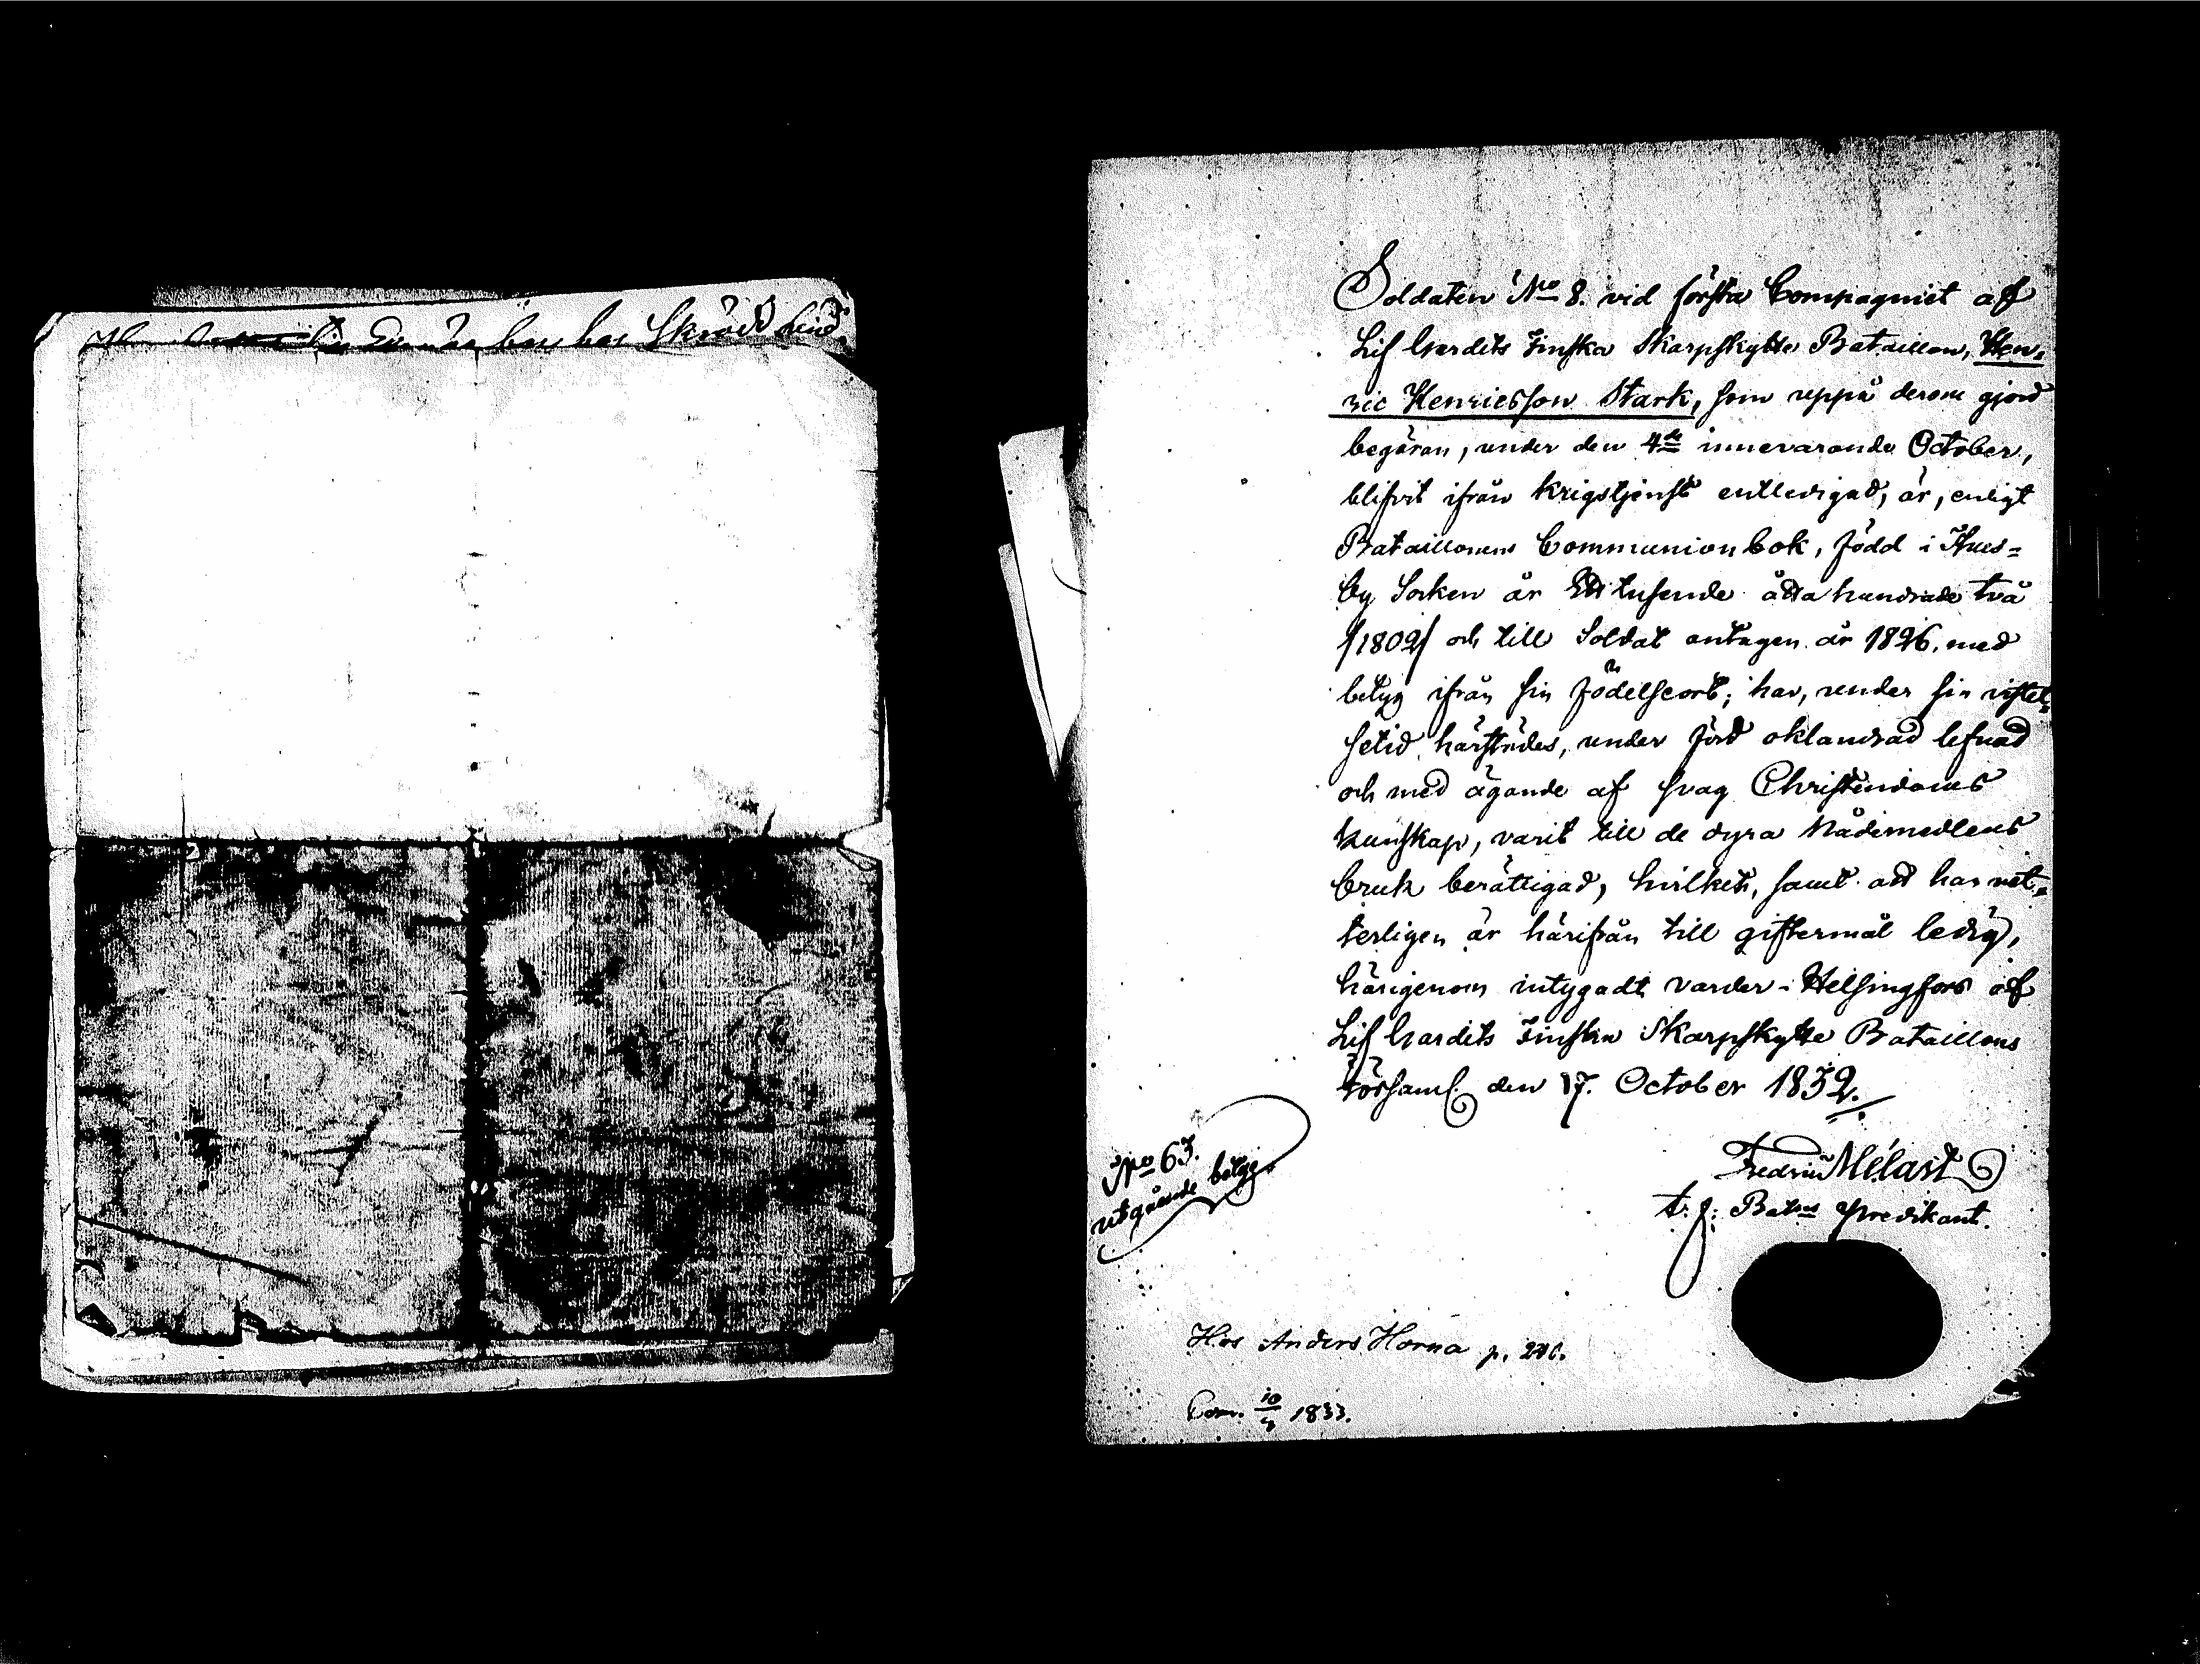 har Skrädd
Soldaten No 8. vid första Compagniet af
Lif Gardets Finska Skarpskytte Bataillon, Hen-
ric Henricsson Stark, som uppå derom gjord
begäran, under den 4de innevarande October,
blifvit ifrån Krigstjenst entledigad, är, enligt
Bataillonens Communionbok, född i Hus-
by Socken år Ett tusende åtta hundrade två
/1802/ och till Soldat antagen år 1826. med
betyg ifrån sin födelseort; har, under sin vistel-
setid härstädes, under förd oklandrad lefnad
och med ägande af svag Christendoms
kunskap, varit till de dyra Nådemedlens
bruk berättigad, hvilket, samt att han vet-
terligen är härifrån till giftermål ledig,
härigenom intygadt varder i Helsingfors af
Lif Gardets Finska Skarpskytte Bataillons
Församl. den 17. October 1832.
Fredric Mélart
t. f. Batns Predikant.
No 63.
utgående betyg
Hos Anders Horna p.
Com. 1833.